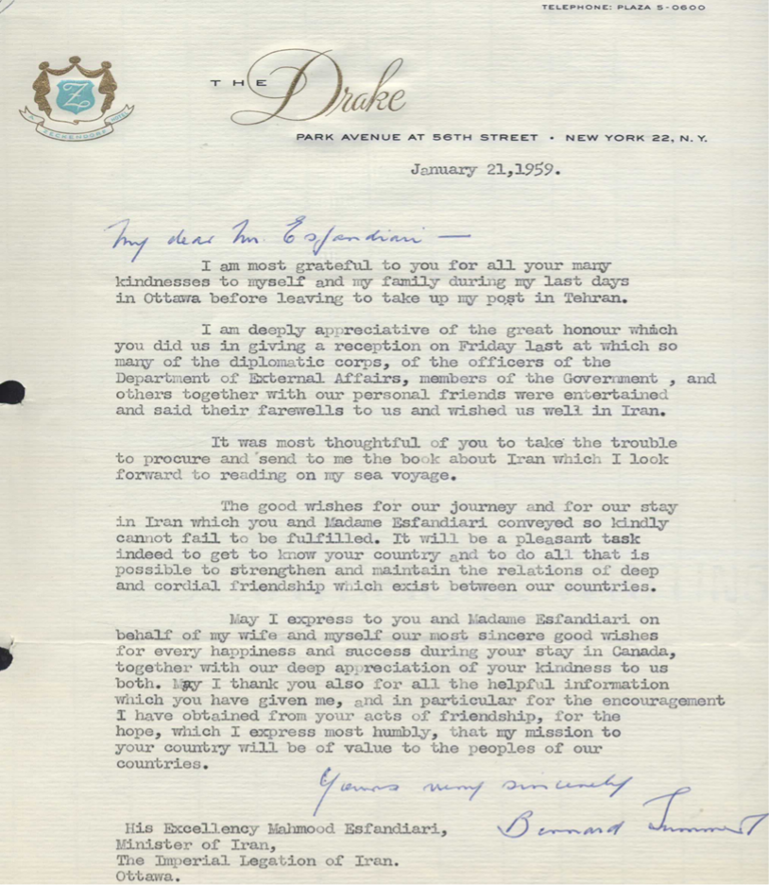 TELEPHONE: PLAZA 5-0600
Z
A ZECKENDORF HOTEL
THE Drake
PARK AVENUE AT 56TH STREET • NEW YORK 22, N.Y.
January 21,1959.
My dear Mr. Esfandiari —
I am most grateful to you for all your many
kindnesses to myself and my family during my last days
in Ottawa before leaving to take up my post in Tehran.
I am deeply appreciative of the great honour which
you did us in giving a reception on Friday last at which so
many of the diplomatic corps, of the officers of the
Department of External Affairs, members of the Government , and
others together with our personal friends were entertained
and said their farewells to us and wished us well in Iran.
It was most thoughtful of you to take the trouble
to procure and send to me the book about Iran which I look
forward to reading on my sea voyage.
The good wishes for our journey and for our stay
in Iran which you and Madame Esfandiari conveyed so kindly
cannot fail to be fulfilled. It will be a pleasant task
indeed to get to know your country and to do all that is
possible to strengthen and maintain the relations of deep
and cordial friendship which exist between our countries.
May I express to you and Madame Esfandiari on
behalf of my wife and myself our most sincere good wishes
for every happiness and success during your stay in Canada,
together with our deep appreciation of your kindness to us
both. May I thank you also for all the helpful information
which you have given me, and in particular for the encouragement
I have obtained from your acts of friendship, for the
hope, which I express most humbly, that my mission to
your country will be of value to the peoples of our
countries.
Yours very sincerely
Bernard
His Excellency Mahmood Esfandiari,
Minister of Iran,
The Imperial Legation of Iran.
Ottawa.